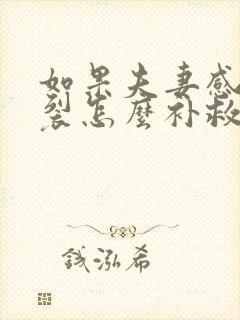 如果夫妻感
裂怎麼补救
钱泓希